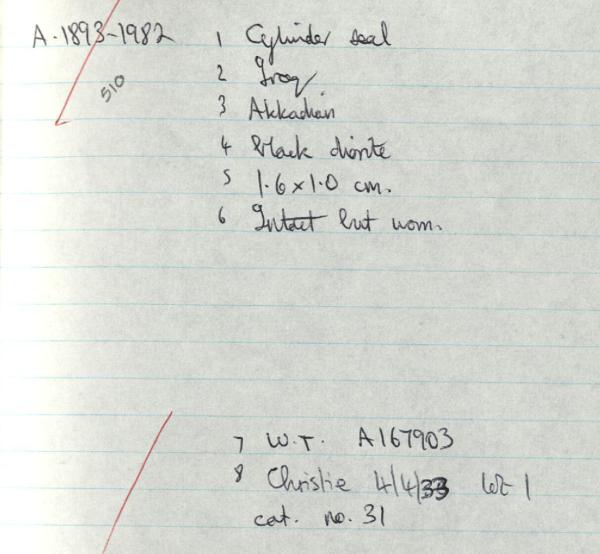 A.1893-1982
510
1 Cylinder seal
2 Iraq
3 Akkadian
4 black diorite
5 1.6 x 1.0 cm.
6 Intact but worn.
7 W.T. A167903
8 Christie 4/4/33 Lot 1
cat. no. 31